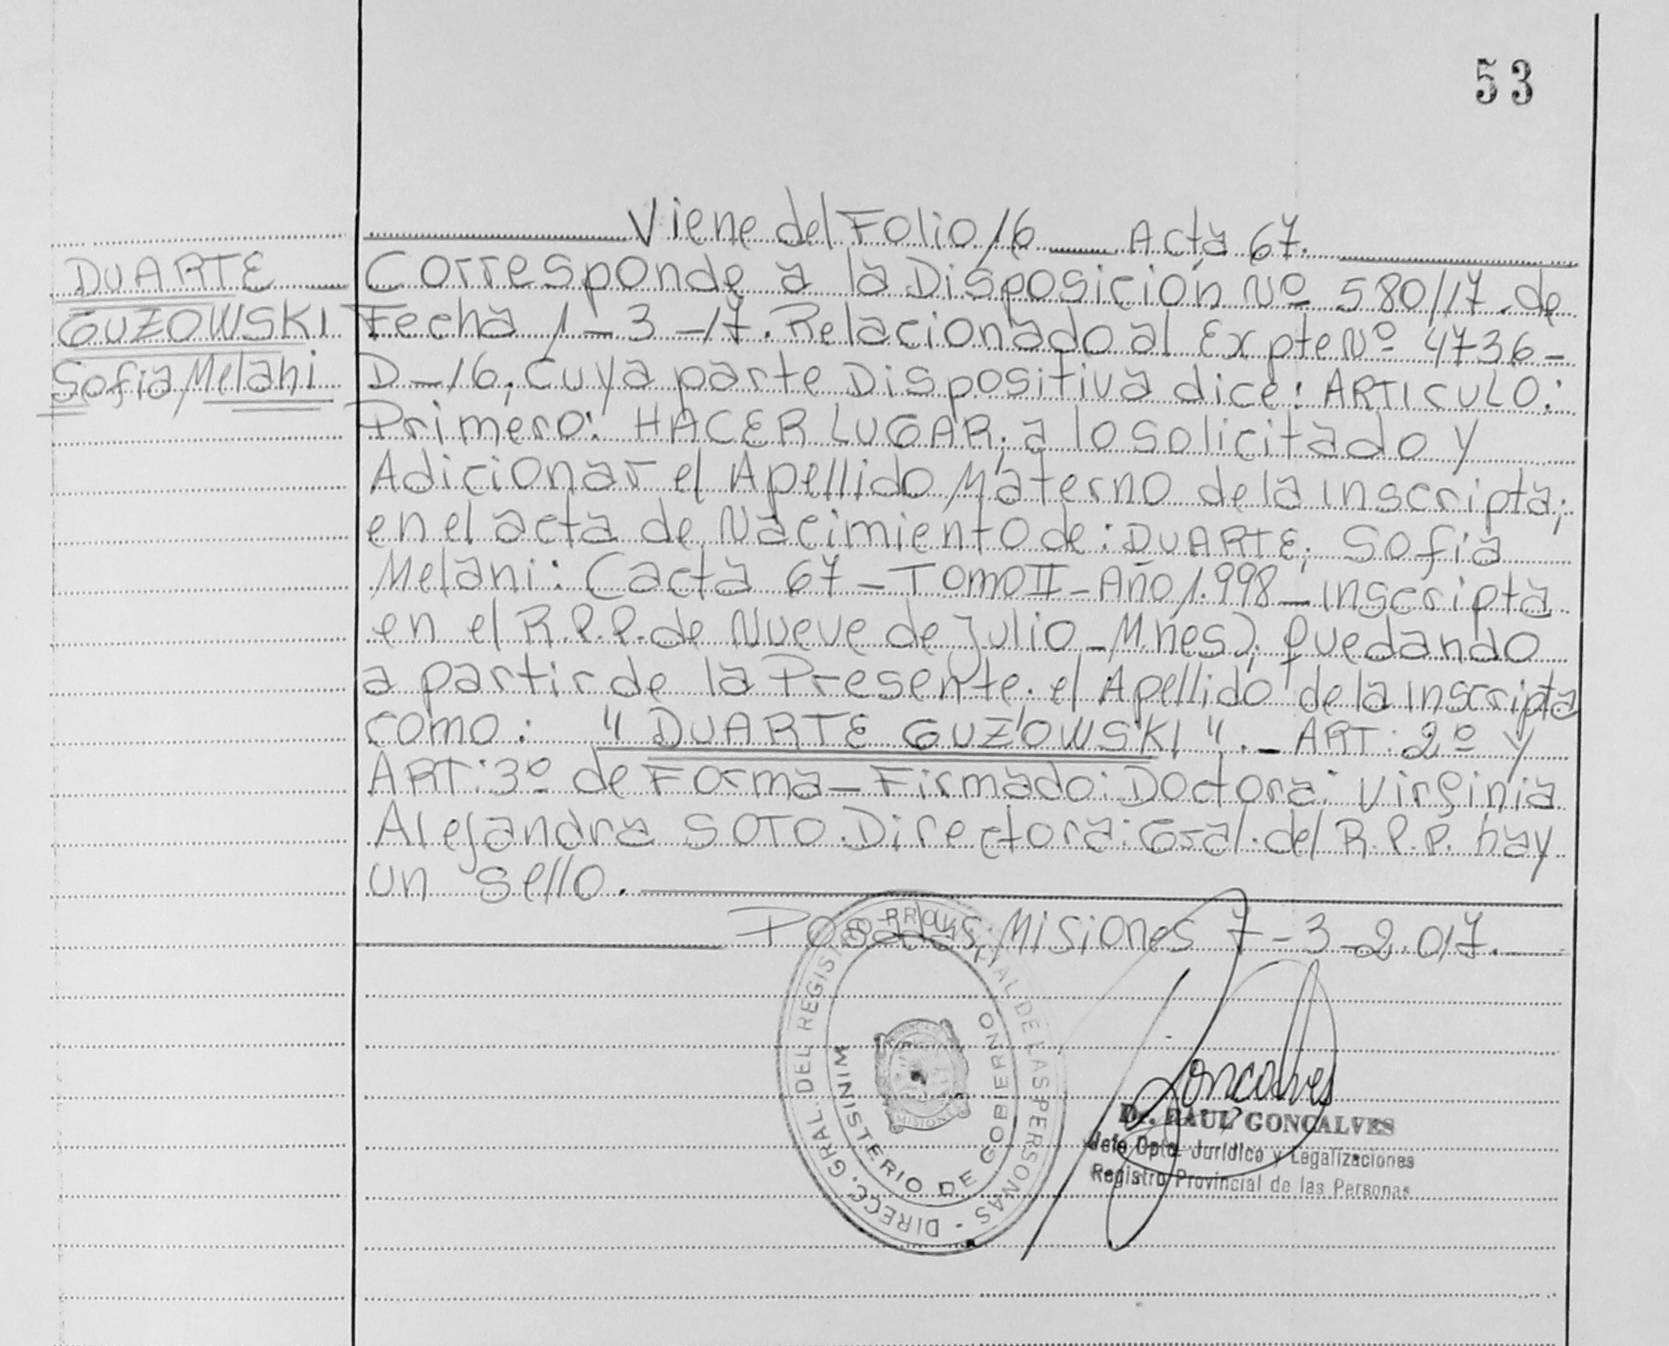 53
Viene del Folio 16 Acta 67.
DUARTE
GUZOWSKI
Sofia Melani
Corresponde a la Disposición Nº 580/17. de
Fecha 1-3-17. Relacionado al Expte Nº 4736-
D-16, cuya parte Dispositiva dice: ARTICULO:
Primero: HACER LUGAR, a lo solicitado y
Adicionar el Apellido Materno de la inscripta;
en el acta de Nacimiento de: DUARTE, Sofia
Melani: (acta 67-TOMO II-Año 1.998-inscripta
en el R.P.P. de Nueve de Julio-Mnes), quedando
a partir de la Presente. el Apellido de la inscripta
como: "DUARTE GUZOWSKI".- ART: 2º y
ART: 3º de Forma-Firmado: Doctora: Virginia
Alejandra SOTO. Directora: Gral. del R.P.P. hay
un sello.
Posadas, Misiones 7-3-2.017.
DIRECC. GRAL. DEL REGISTRO PROVINCIAL DE LAS PERSONAS -
MINISTERIO DE GOBIERNO
PROVINCIA
MISIONES
Goncalves
Dr. RAUL GONCALVES
Jefe Dpto. Jurídico y Legalizaciones
Registro Provincial de las Personas